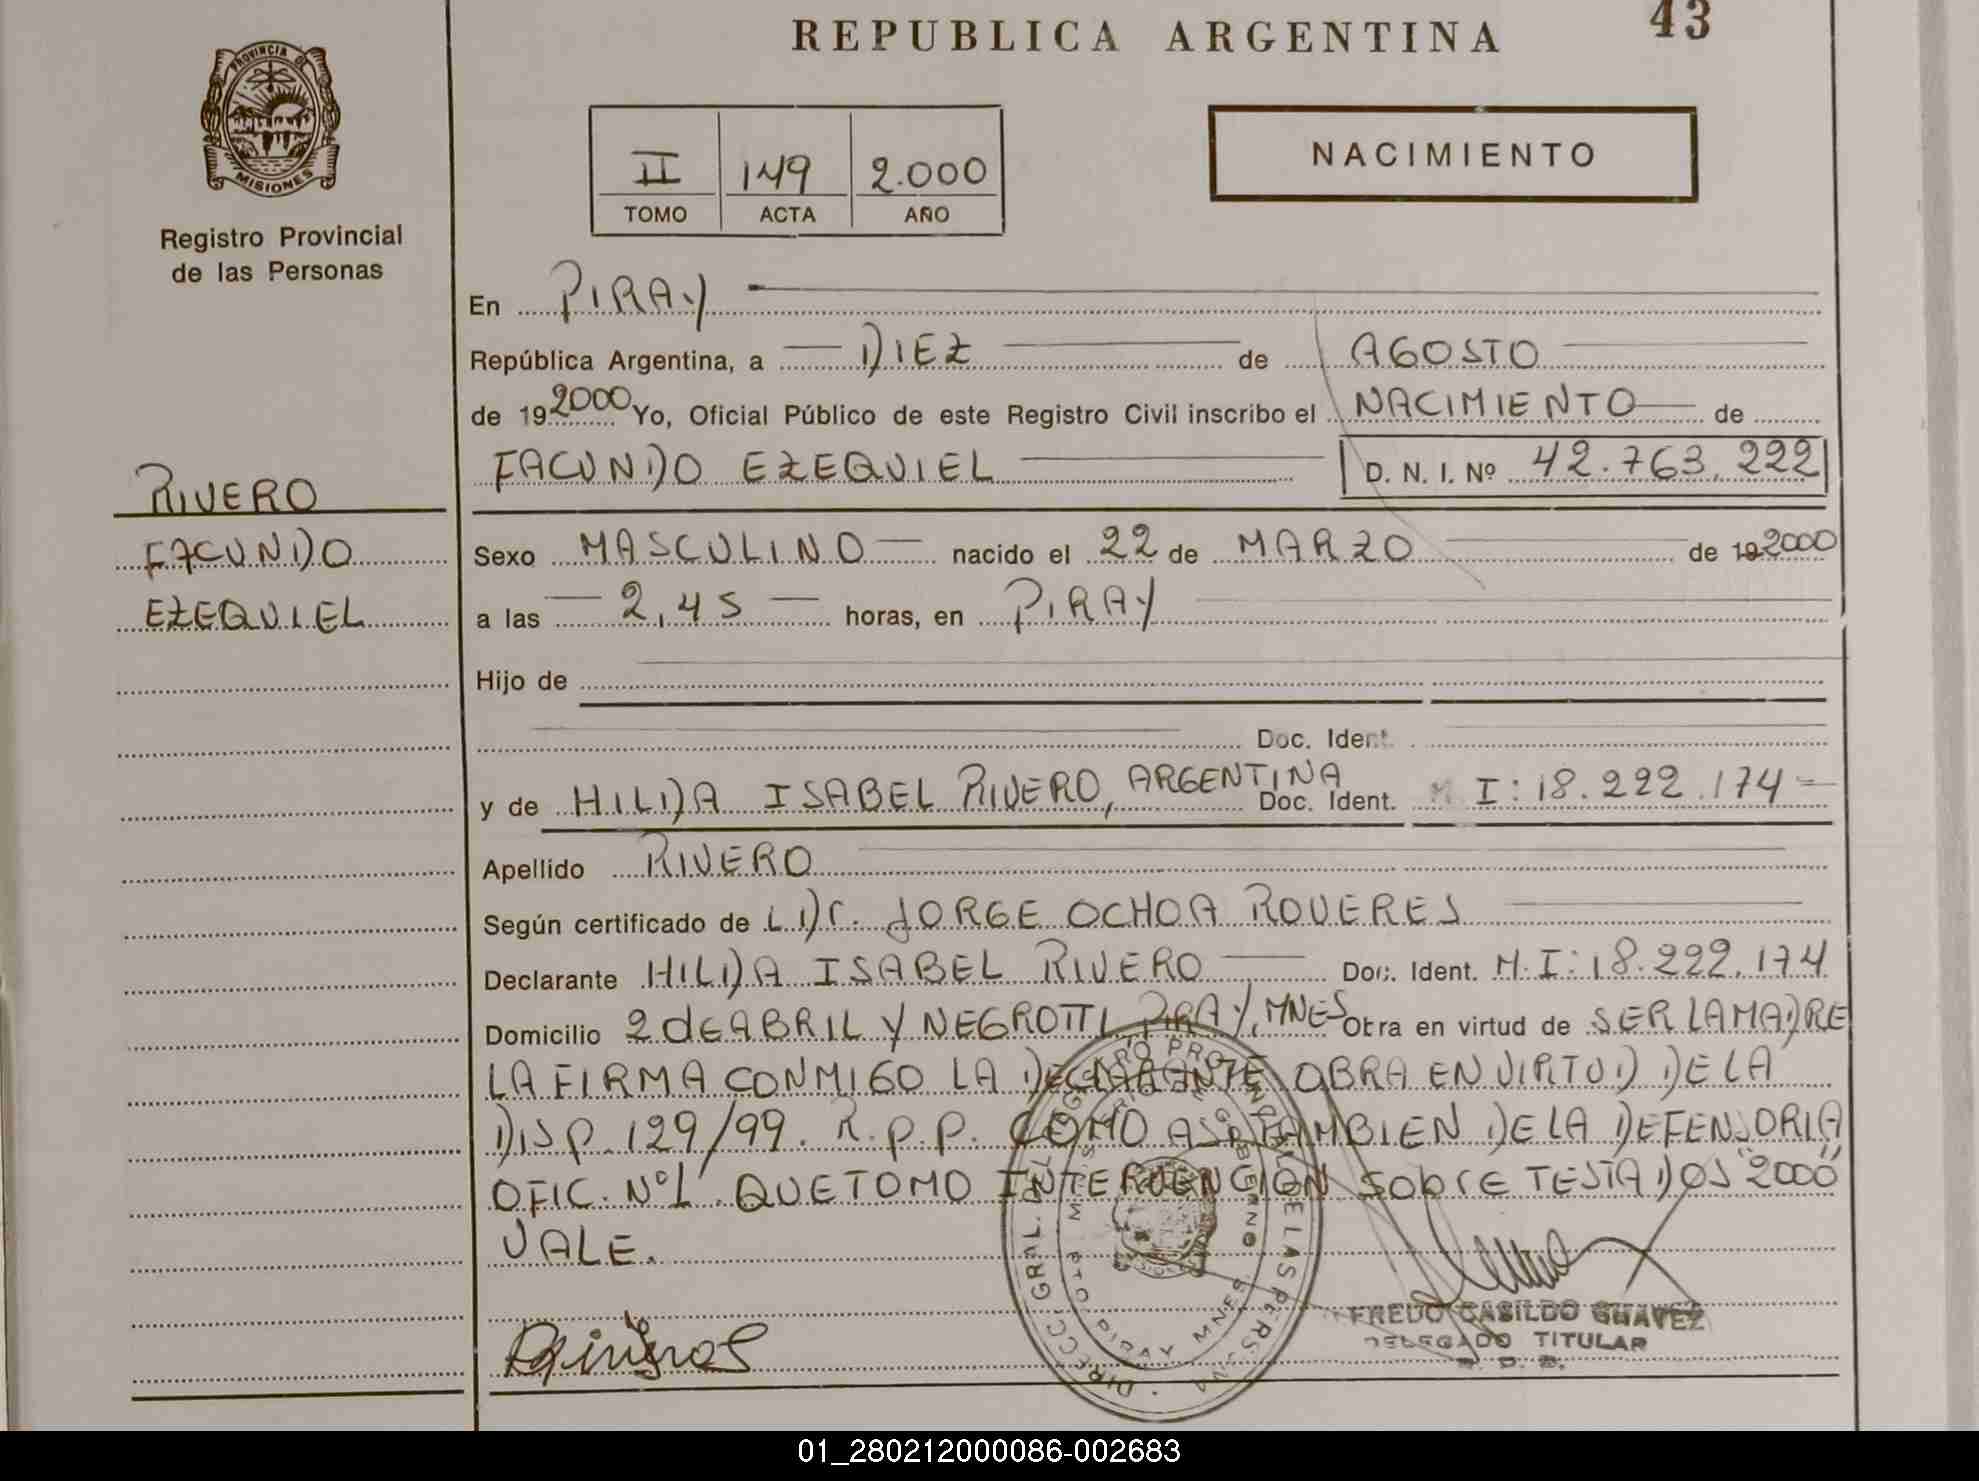 REPUBLICA ARGENTINA 43
PROVINCIA DE
MISIONES
Registro Provincial
de las Personas
II 149 2.000
TOMO ACTA AÑO
NACIMIENTO
En PIRAY
República Argentina, a DIEZ de AGOSTO
de 19 2000 Yo, Oficial Público de este Registro Civil inscribo el NACIMIENTO de
FACUNDO EZEQUIEL D. N. I. Nº 42.763.222
RIVERO
FACUNDO
EZEQUIEL
Sexo MASCULINO nacido el 22 de MARZO de 19 2000
a las 2,45 horas, en PIRAY
Hijo de
Doc. Ident.
y de HILDA ISABEL RIVERO, ARGENTINA Doc. Ident. M I: 18.222.174
Apellido RIVERO
Según certificado de LIC. JORGE OCHOA ROVERES
Declarante HILDA ISABEL RIVERO Doc. Ident. M.I: 18.222.174
Domicilio 2 de ABRIL Y NEGROTTI PIRAY, MNES Obra en virtud de SER LA MADRE
LA FIRMA CONMIGO LA DECLARANTE OBRA EN VIRTUD DE LA
DISP. 129/99. R.P.P. COMO ASI TAMBIEN DE LA DEFENSORIA
OFIC. Nº1. QUE TOMO INTERVENCION SobrE TESTADOS "2000"
VALE.
FREDO CASILDO CHAVEZ
DELEGADO TITULAR
01_280212000086-002683